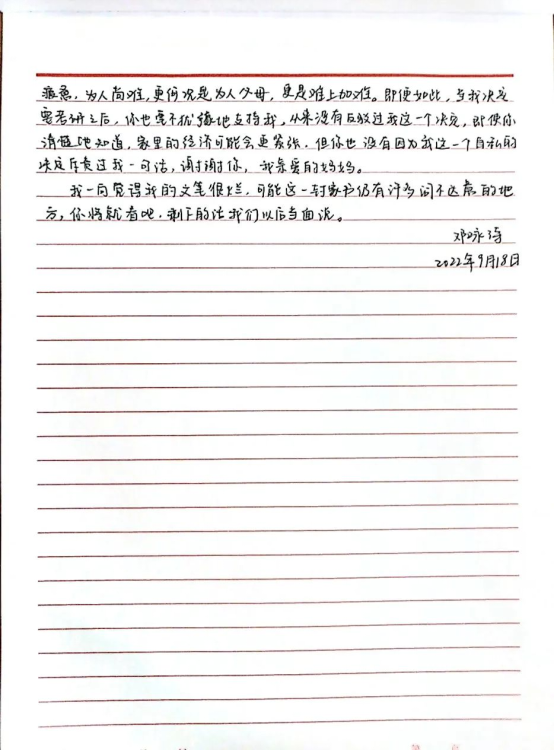 疲惫，为人尚难，更何况是为人父母，更是难上加难。即便如此，当我决定
要考研之后，你也毫不犹豫地支持我，从来没有反驳过我这一个决定，即使你
清楚地知道，家里的经济可能会更紧张，但你也没有因为我这一个自私的
决定斥责过我一句话，谢谢你，我亲爱的妈妈。
我一向觉得我的文笔很烂，可能这一封家书仍有许多词不达意的地
方，你将就看吧，剩下的话我们以后当面说。
邓咏诗
2022年9月18日